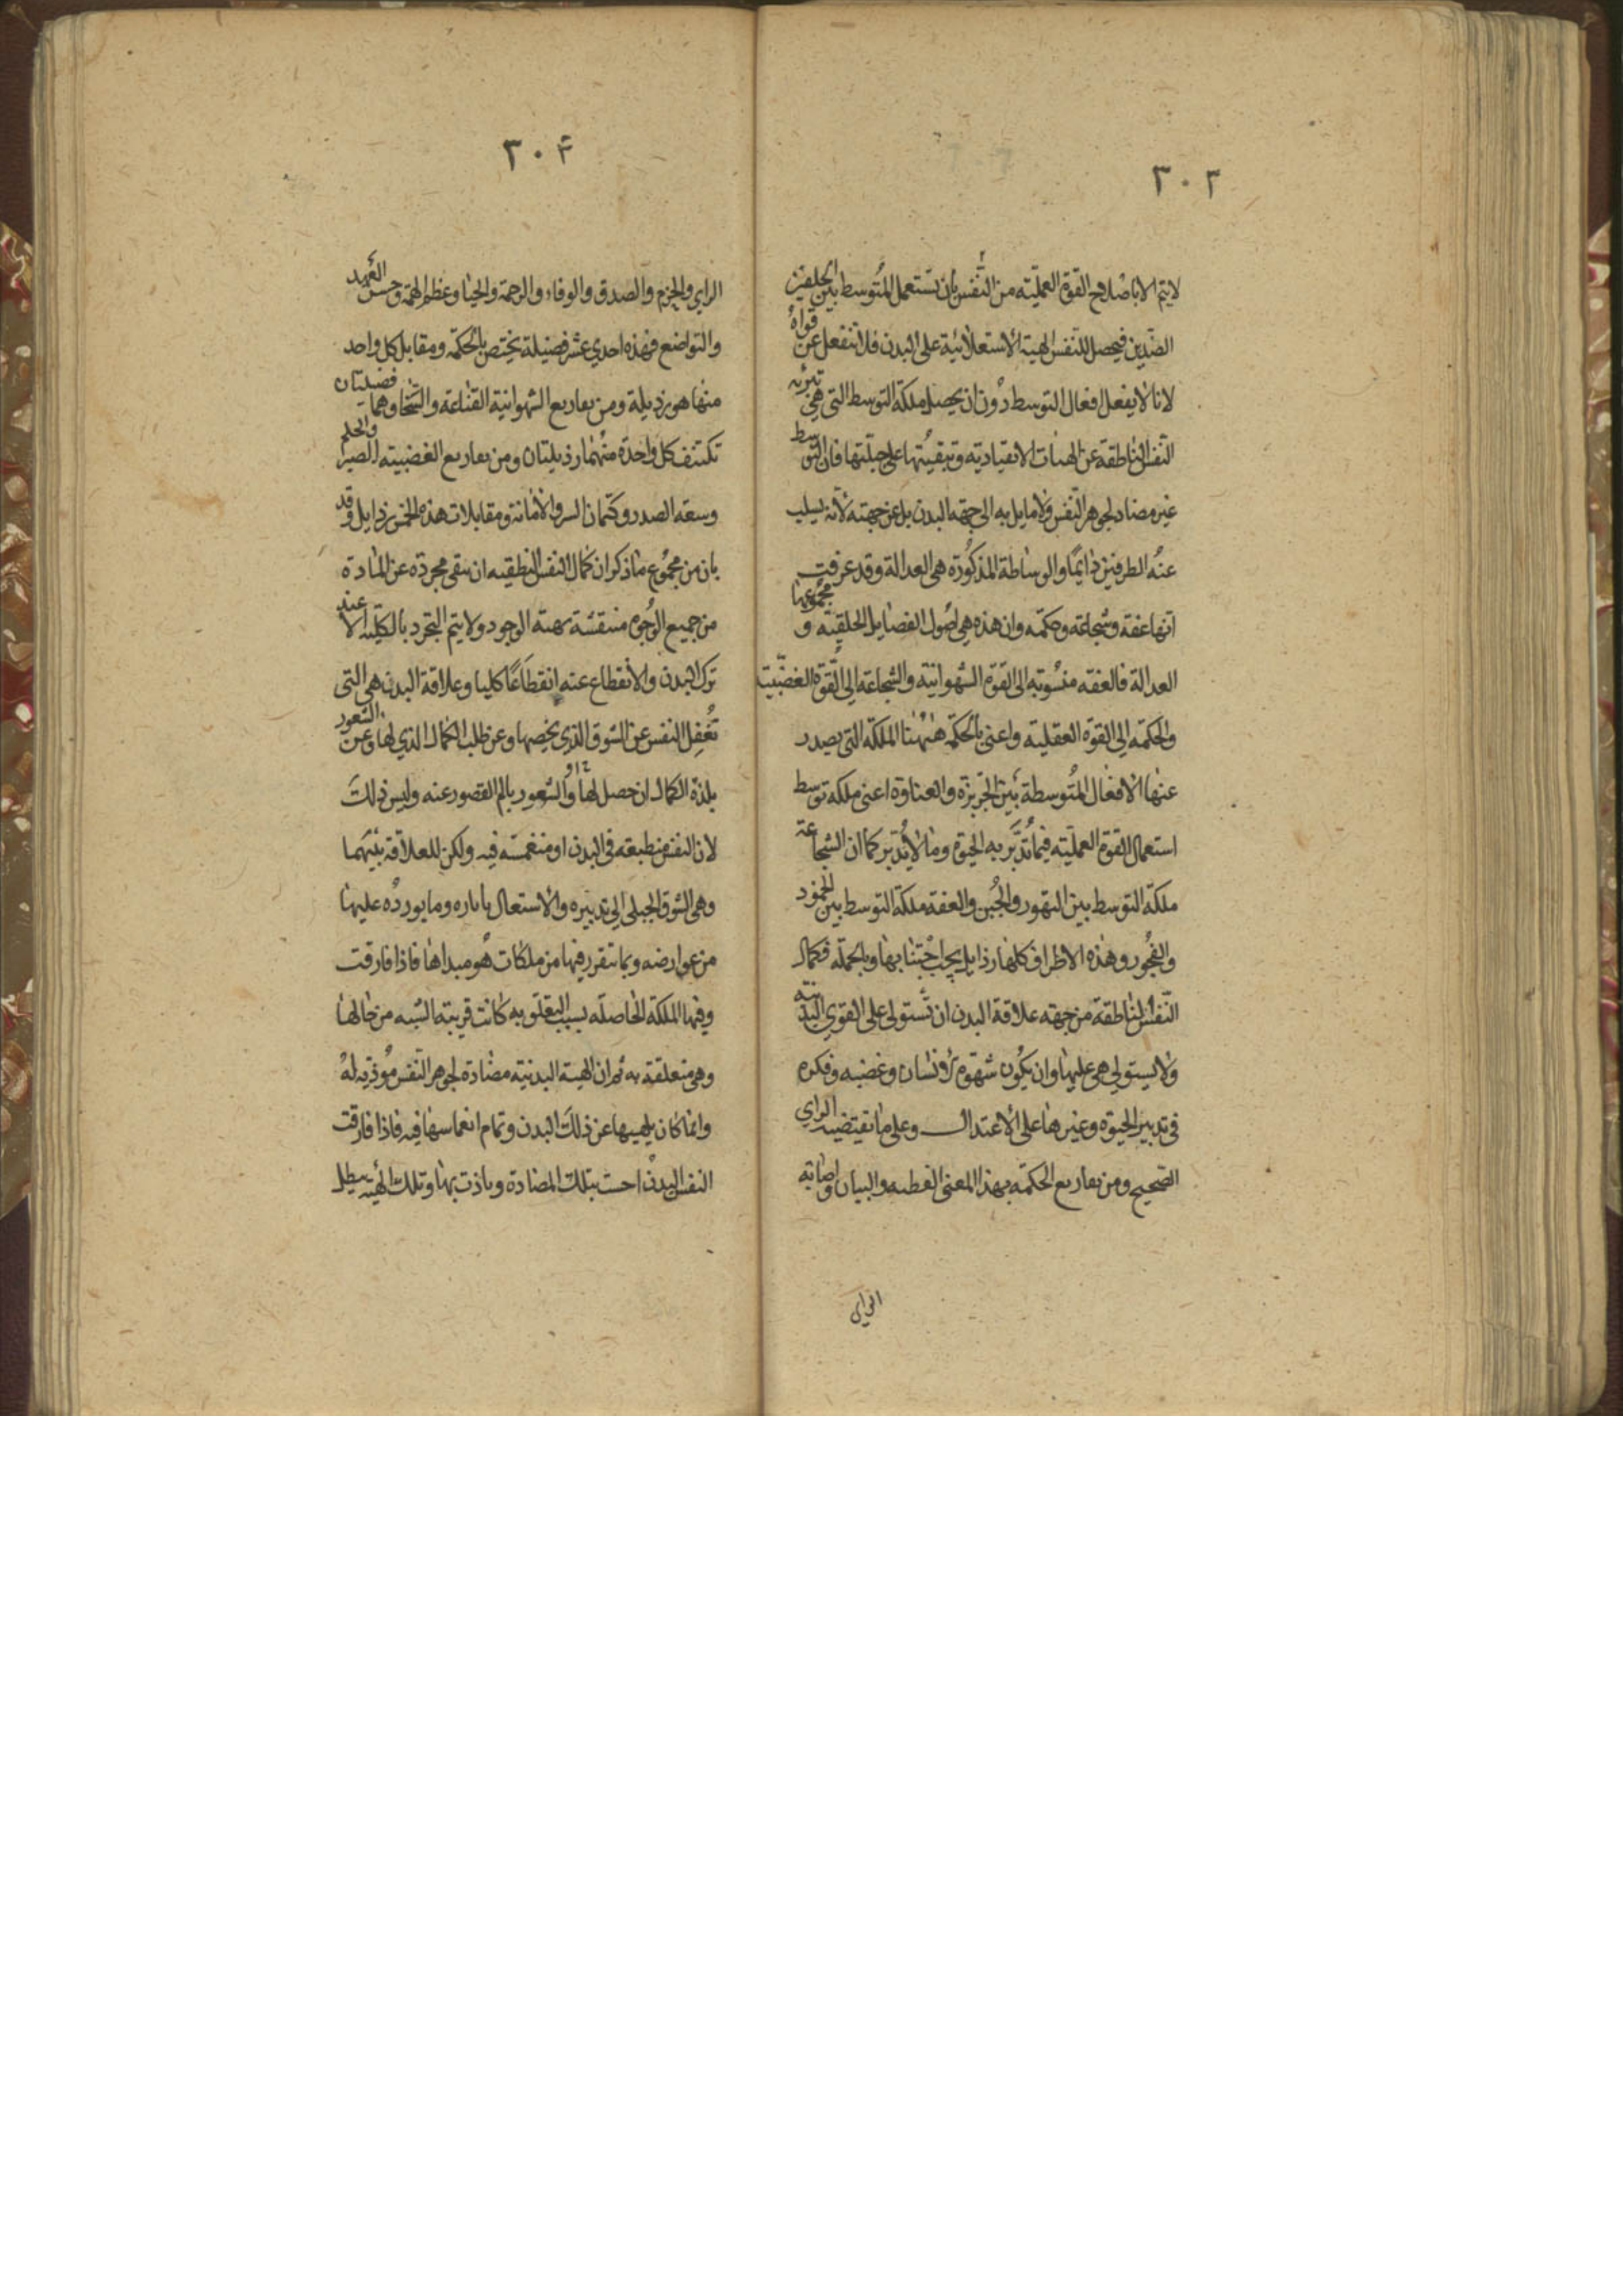 ٣٠٣
لا يتم الا باصلاح القوة العملية من النفس بان تستعمل المتوسط بين الخلقين
الضدين فيحصل للنفس الهيئة الاستعلائية على البدن فلا تنفعل عن قواه
لانا لا يفعل افعال التوسط دون ان يحصل ملكة التوسط التى هي تبرئه
النفس الناطقة عن الهيات الانقيادية وتبقيتها على جبلتها فان التوسط
غير مضاد لجوهر النفس ولا مايل به الى جهة البدن بل عن جهته لانه يسلب
عنه الطرفين دائما والوساطة المذكورة هى العدالة وقد عرفت
انها عفة وشجاعة وحكمه وان هذه هي اصول الفضايل الخلقية و مجموعها
العدالة فالعفه منسوبة الى القوة الشهوانية والشجاعة الى القوة الغضبية
والحكمة الى القوة العقلية واعنى بالحكمة هٰهنا الملكة التى يصدر
عنها الافعال المتوسطة بين الجربزة والغباوة اعنى ملكة توسط
استعمال القوة العملية فيما تدبر به الحيوة وما لا تدبر كما ان الشجاعة
ملكة التوسط بين التهور والجبن والعفة ملكة التوسط بين الخمود
والفجور وهذه الاطراف كلها رذايل يجب اجتنابها وبالجملة فكمال
النفس الناطقة من جهة علاقة البدن ان تستولى على القوى البدنية
ولا يستولي هى عليها وان يكون شهوة الانسان وغضبه وفكره
فى تدبير الحيوة وغيرها على الاعتدال وعلى ما تقتضيه الراي
الصحيح ومن تفاريع الحكمة بهذا المعنى الفطنه والبيان واصابة
الراى
٣٠٤
الراي والحزم والصدق والوفاء والرحمة والحيا وعظم الهمة وحسن العهد
والتواضع فهذه احدي عشر فضيلة يختص بالحكمة ومقابل كل واحد
منها هو رذيلة ومن تفاريع الشهوانية القناعة والسخا وهما فضيلتان
تكتنف كل واحدة منهما رذيلتان ومن تفاريع الغضبيته الصبر والحلم
وسعة الصدر وكتمان السر والامانة ومقابلات هذه الخمس رذايل وقد
بان من مجموع ما ذكر ان كمال النفس النطقيه ان تبقى مجردة عن المادة
من جميع الوجوه منتقشة بهيئة الوجود ولا يتم التجرد بالكلية الا عند
ترك البدن والانقطاع عنه انقطاعًا كليا وعلاقة البدن هى التى
تغفل النفس عن الشوق الذى يخصها وعن طلب الكمال الذي لها وعن الشعور
بلذة الكمال ان حصل لها او الشعور بالم القصور عنه وليس ذلك
لان النفس منطبعة فى البدن او منغمسة فيه ولكن للعلاقة بينهما
وهى الشوق الجبلى الى تدبيره والاستعمال باثاره وما يورده عليها
من عوارضه وبما تتقرر فيها من ملكات هو مبداها فاذا فارقت
وفيها الملكة الحاصلة بسبب التعلق به كانت قريبة الشبه من حالها
وهى متعلقة به ثم ان الهيئة البدنية مضادة لجوهر النفس موذية له
وانما كان يلهيها عن ذلك البدن وتمام انغماسها فيه فاذا فارقت
النفس البدن احست بتلك المضادة وتاذت بها وتلك الهيئة تبطل